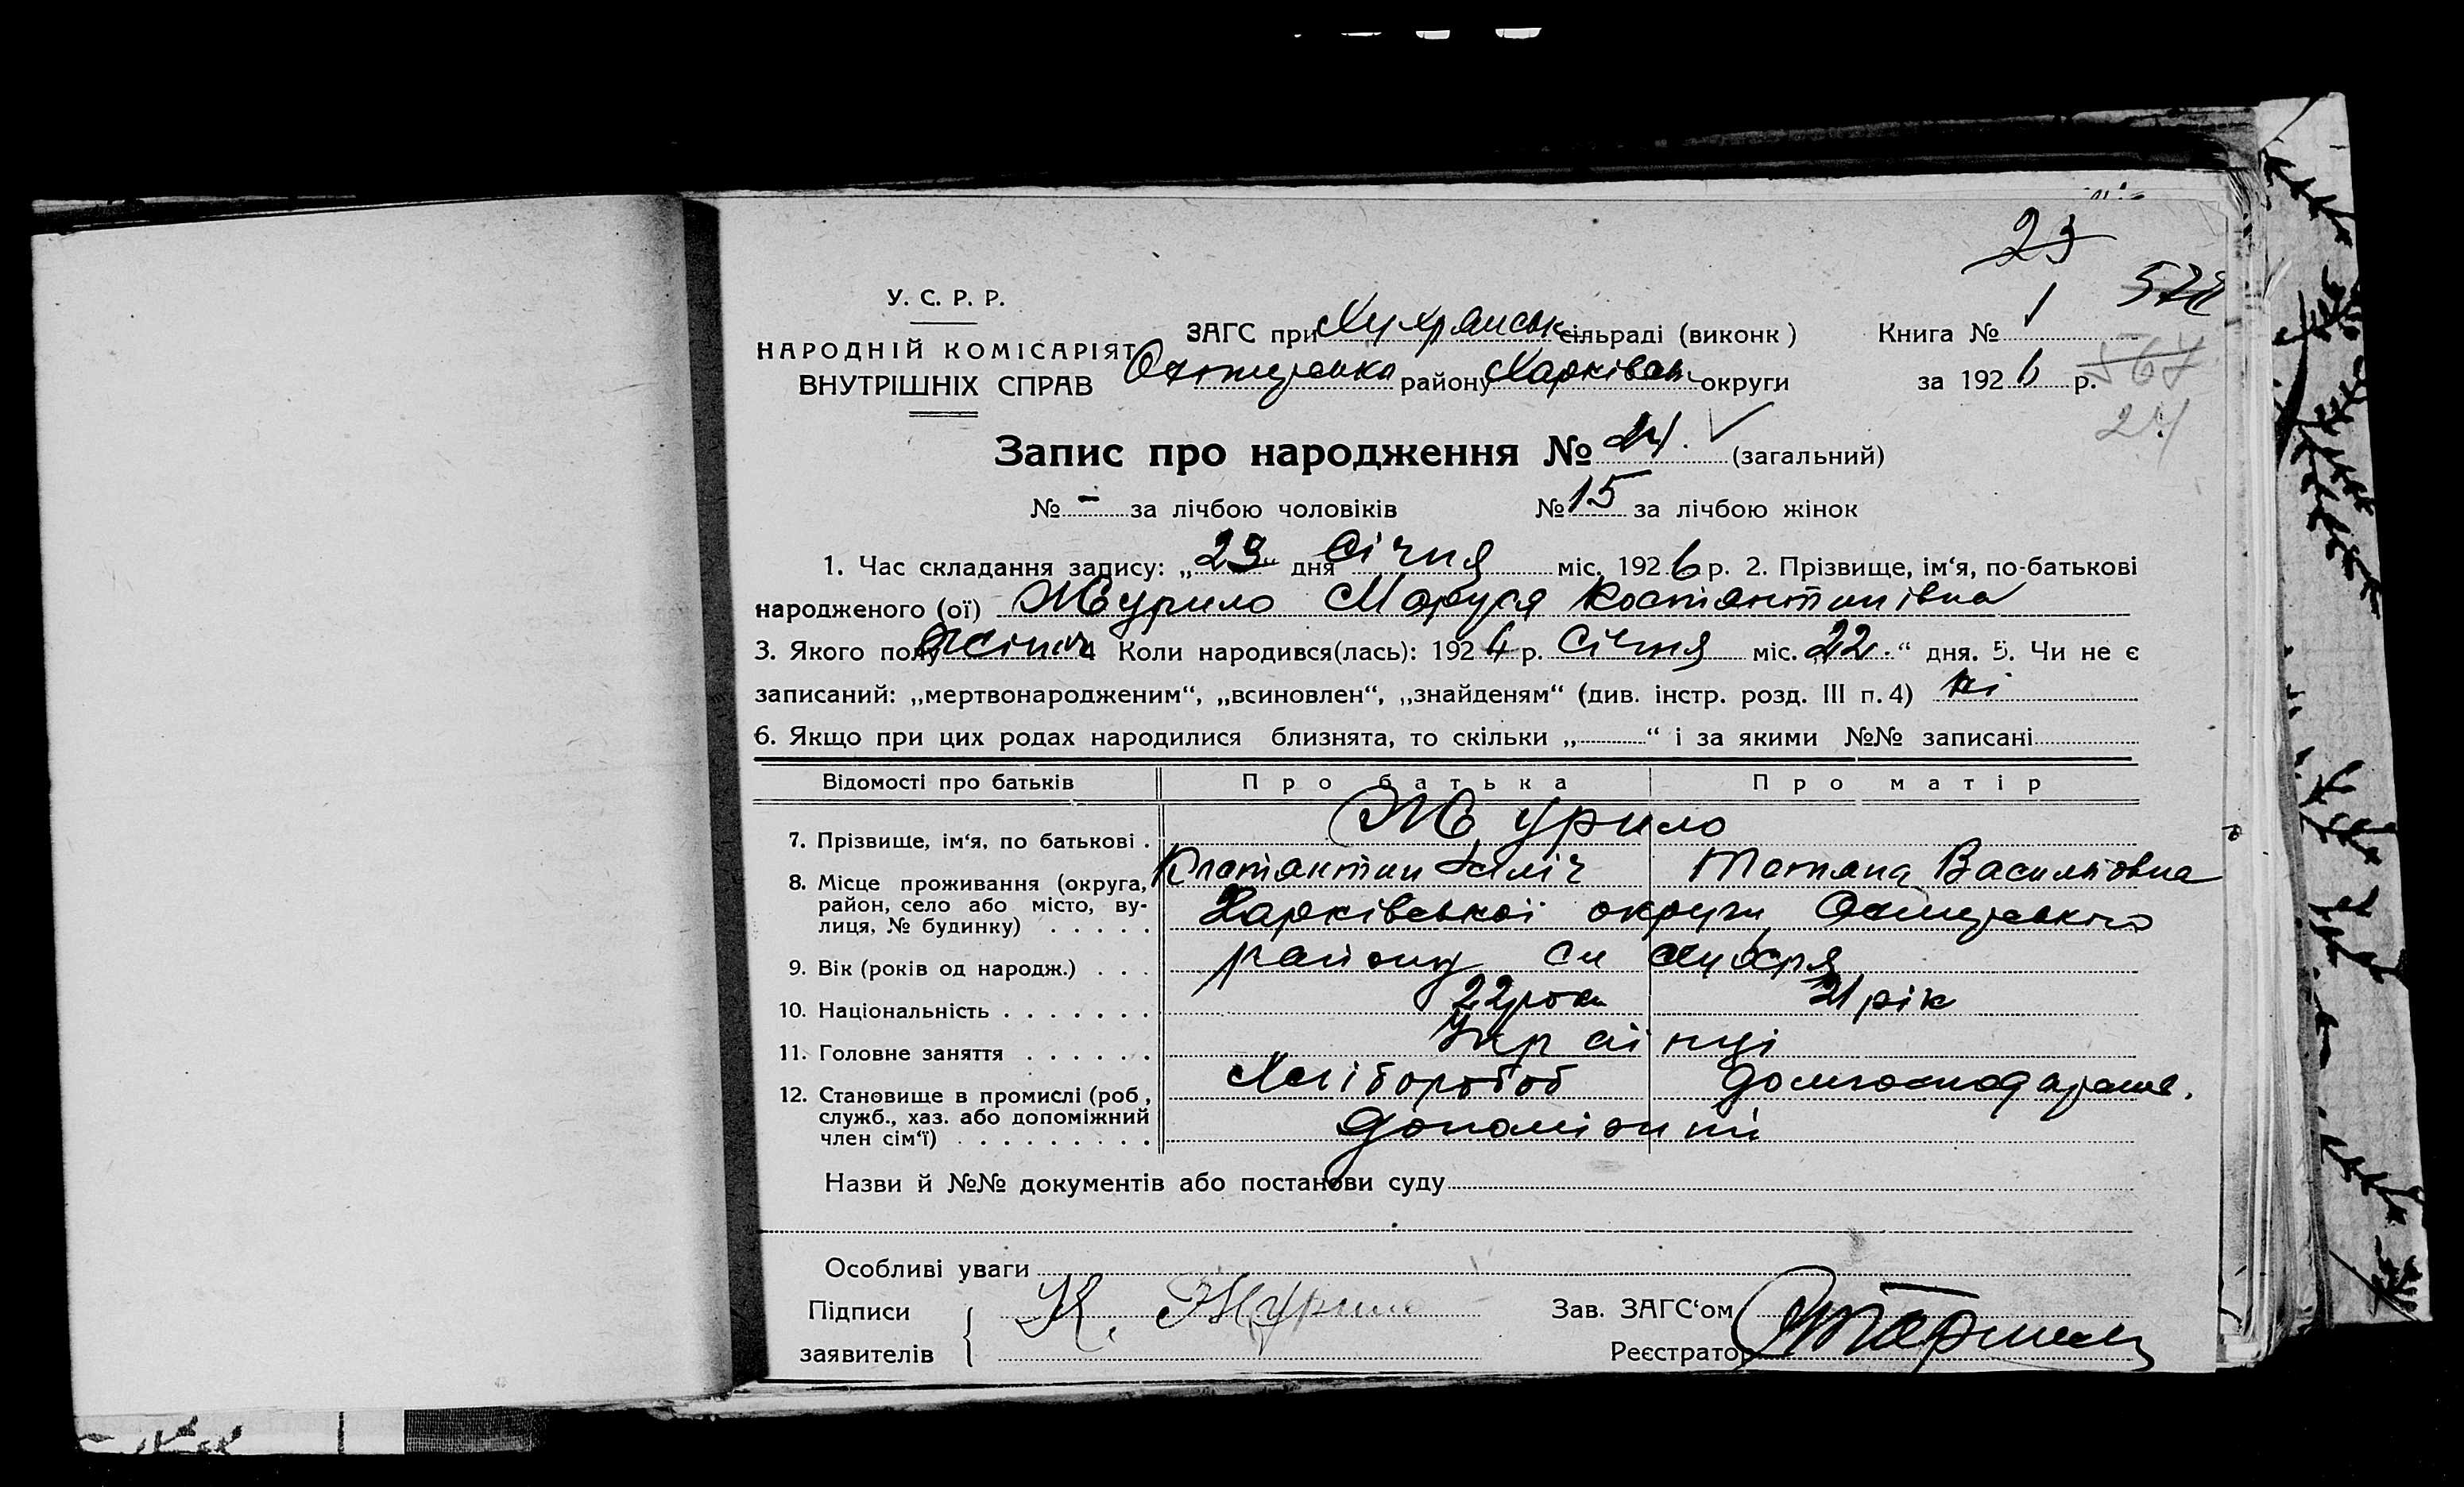 23
572
У. С. Р. Р.
НАРОДНІЙ КОМІСАРІЯТ
ВНУТРІШНІХ СПРАВ
ЗАГС при Кухрянськ сільраді (виконк)
Книга № 1
567
района Харківськ округи
за 1926 р.
24
Запис про народження № 24. (загальний)
№ - за лічбою чоловіків № 15 за лічбою жінок
1. Час складання запису: „23“ дня Січня міс. 1926 р. 2. Прізвище, ім‘я, по-батькові
народженого (ої) Журило Маруся Костянтинівна
3. Якого полу жіноч 4 Коли народився(лась): 192 р. Січня міс. „22“ дня. 5. Чи не є
записаний: „мертвонародженим“, „всиновлен“, „знайденям“ (див. інстр. розд. III п. 4) ні
6. Якщо при цих родах народилися близнята, то скільки „ “ і за якими №№ записані
Відомості про батьків Про батька Про матір
7. Прізвище, ім‘я, по батькові . Журило
Костянтин Тетяна Василівна
8. Місце проживання (округа,
район, село або місто, ву-
лиця, № будинку) . . . . . Харківської округи Охтирського
9. Вік (років од народж.) . . . району
22 рок 21 рік
10. Національність . . . . . . .
Українці
11. Головне заняття . . . . . .
Хлібороб домгосподарка.
12. Становище в промислі (роб,
служб., хаз. або допоміжний
член сім‘ї) . . . . . . . . . допоміжні
Назви й №№ документів або постанови суду
Особливі уваги
Підписи
заявителів
К. Журило
Зав. ЗАГС‘ом
Реєстратор